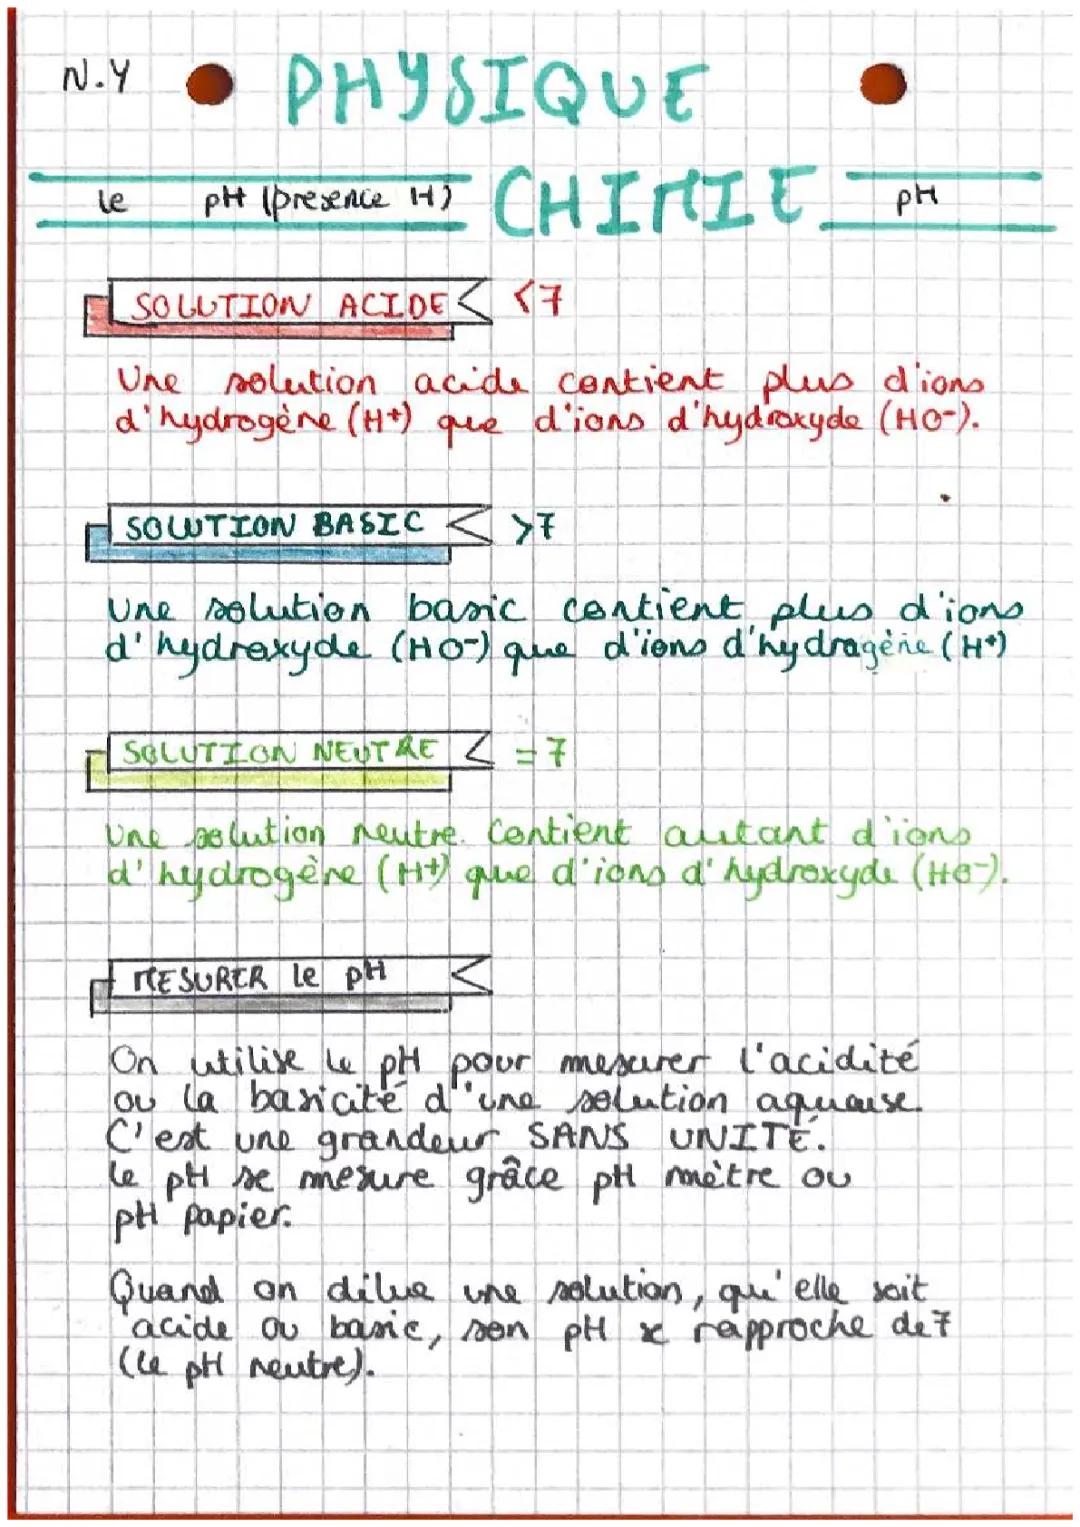 N.Y
PHYSIQUE
CHIMIE
le pH (presence H)
pH
SOLUTION ACIDE <7
Une solution acide contient plus d'ions
d'hydrogène (H+) que d'ions d'hydroxyde (HO-).
SOLUTION BASIC >7
Une solution basic contient plus d'ions
d'hydroxyde (HO-) que d'ions d'hydrogène (H+)
SOLUTION NEUTRE =7
Une solution neutre. Contient autant d'ions
d'hydrogène (H+) que d'ions d'hydroxyde (HO-).
MESURER le pH
On utilise le pH pour mesurer l'acidité
ou la basicité d'une solution aqueuse.
C'est une grandeur SANS UNITÉ.
le pH se mesure grâce pH mètre ou
pH papier.
Quand on dilue une solution, qu'elle soit
acide ou basic, son pH se rapproche de 7
(le pH neutre).